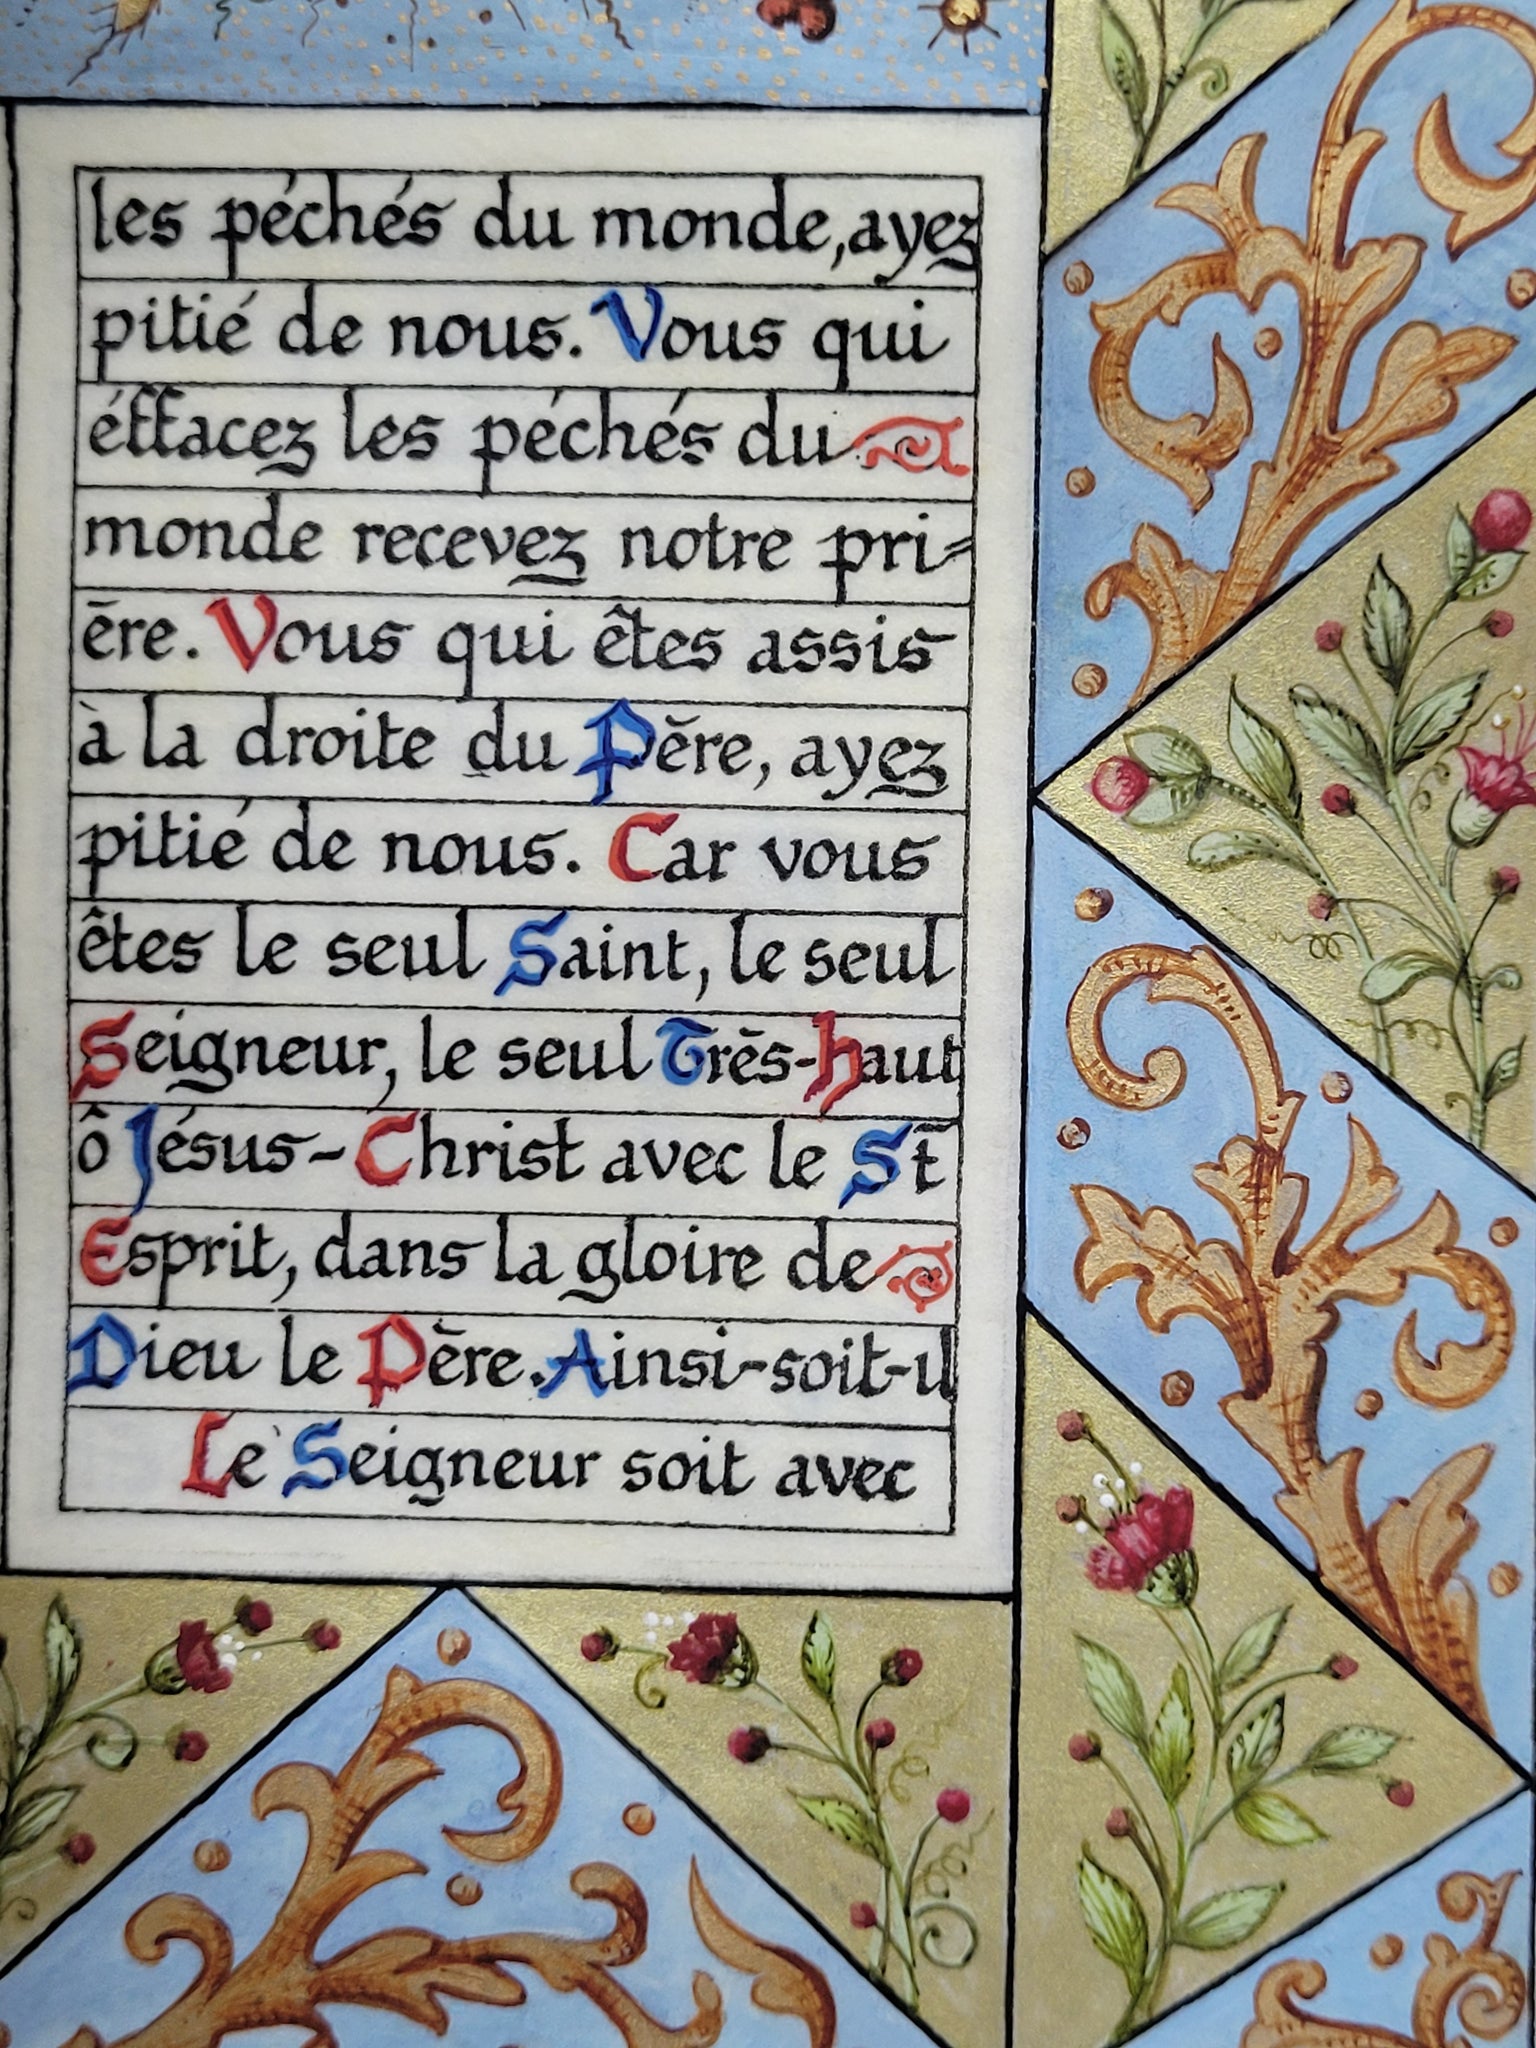 les péchés du monde, ayez
pitié de nous. Vous qui
éffacez les péchés du
monde recevez notre pri-
ēre. Vous qui êtes assis
à la droite du Pēre, ayez
pitié de nous. Car vous
êtes le seul Saint, le seul
Seigneur, le seul Trēs-haut
ô Jésus-Christ avec le St
Esprit, dans la gloire de
Dieu le Pēre. Ainsi-soit-il
Le Seigneur soit avec